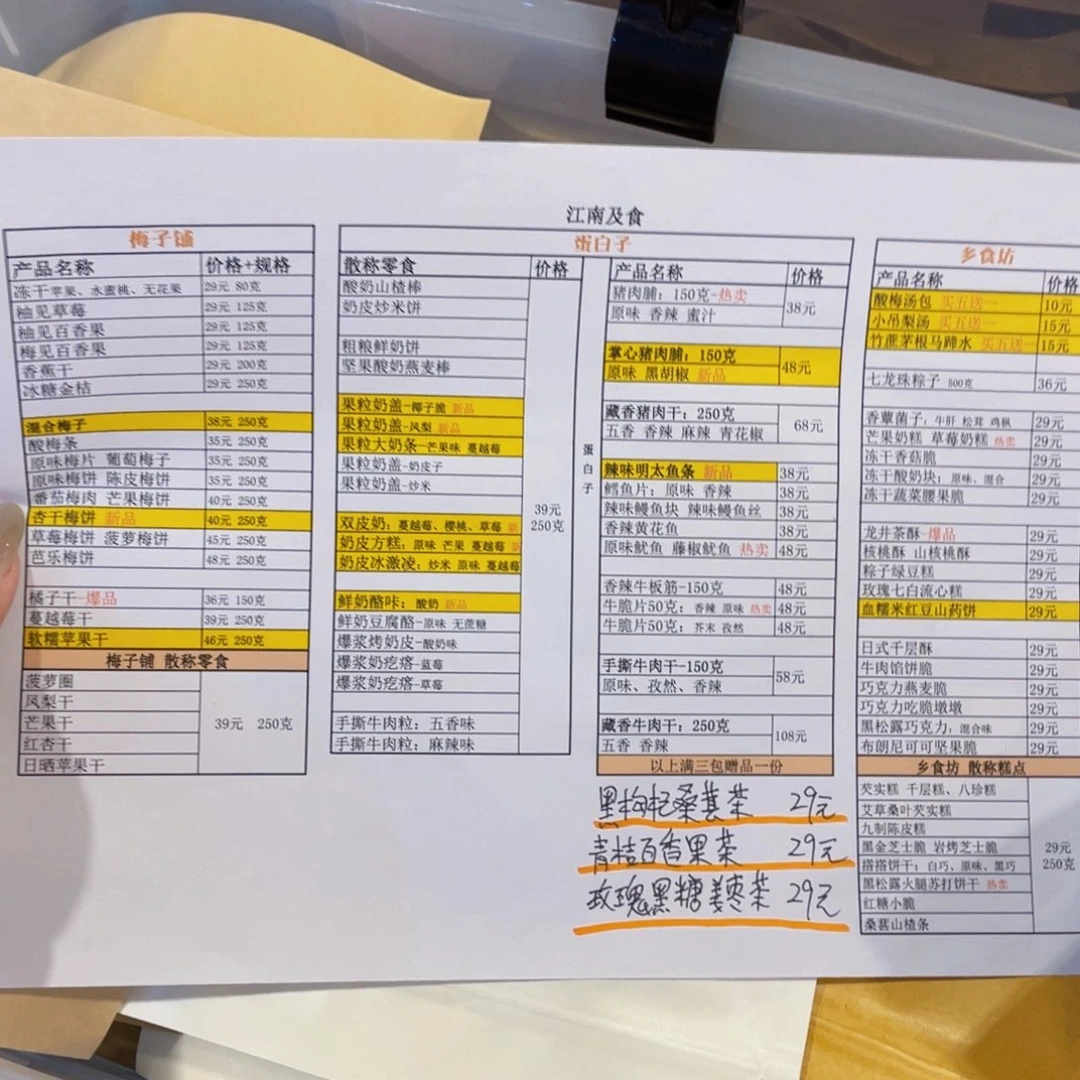 江南及食
梅子铺
产品名称 价格+规格
冻干苹果、水蜜桃、无花果 29元 80克
柚见草莓 29元 125克
柚见百香果 29元 125克
梅见百香果 29元 125克
香蕉干 29元 200克
冰糖金桔 29元 250克
混合梅子 38元 250克
酸梅条 35元 250克
原味梅片 葡萄梅子 35元 250克
原味梅饼 陈皮梅饼 35元 250克
番茄梅肉 芒果梅饼 40元 250克
杏干梅饼 新品 40元 250克
草莓梅饼 菠萝梅饼 45元 250克
芭乐梅饼 48元 250克
橘子干-爆品 36元 150克
蔓越莓干 39元 250克
软糯苹果干 46元 250克
梅子铺 散称零食
菠萝圈
凤梨干
芒果干
红杏干
日晒苹果干
39元 250克
蛋白子
散称零食 价格
酸奶山楂棒
奶皮炒米饼
粗粮鲜奶饼
坚果酸奶燕麦棒
果粒奶盖-椰子脆 新品
果粒奶盖-凤梨 新品
果粒大奶条-芒果味 蔓越莓
果粒奶盖-奶皮子
果粒奶盖-炒米
双皮奶：蔓越莓、樱桃、草莓 新
奶皮方糕：原味 芒果 蔓越莓
奶皮冰激凌：炒米 原味 蔓越莓
鲜奶酪咔：酸奶 新品
鲜奶豆腐酪-原味 无蔗糖
爆浆烤奶皮-酸奶味
爆浆奶疙瘩-蓝莓
爆浆奶疙瘩-草莓
手撕牛肉粒：五香味
手撕牛肉粒：麻辣味
39元
250克
蛋白子
产品名称 价格
猪肉脯：150克-热卖
原味 香辣 蜜汁
38元
掌心猪肉脯：150克
原味 黑胡椒 新品
48元
藏香猪肉干：250克
五香 香辣 麻辣 青花椒
68元
辣味明太鱼条 新品 38元
鳕鱼片：原味 香辣 38元
辣味鳗鱼块 辣味鳗鱼丝 38元
香辣黄花鱼 38元
原味鱿鱼 藤椒鱿鱼 热卖 48元
香辣牛板筋-150克 48元
牛脆片50克：香辣 原味 热卖 48元
牛脆片50克：芥末 孜然 48元
手撕牛肉干-150克
原味、孜然、香辣
58元
藏香牛肉干：250克
五香 香辣
108元
以上满三包赠品一份
黑枸杞桑葚茶 29元
青桔百香果茶 29元
玫瑰黑糖姜枣茶 29元
乡食坊
产品名称 价格
酸梅汤包 买五送一 10元
小吊梨汤 买五送一 15元
竹蔗茅根马蹄水 买五送一 15元
七龙珠粽子 500克 36元
香蕈菌子：牛肝 松茸 鸡枞 29元
芒果奶糕 草莓奶糕 热卖 29元
冻干香菇脆 29元
冻干酸奶块：原味、混合 29元
冻干蔬菜腰果脆 29元
龙井茶酥-爆品 29元
核桃酥 山核桃酥 29元
粽子绿豆糕 29元
玫瑰七白流心糕 29元
血糯米红豆山药饼 29元
日式千层酥 29元
牛肉馅饼脆 29元
巧克力燕麦脆 29元
巧克力吃脆墩墩 29元
黑松露巧克力：混合味 29元
布朗尼可可坚果脆 29元
乡食坊 散称糕点
芡实糕 千层糕、八珍糕
艾草桑叶芡实糕
九制陈皮糕
黑金芝士脆 岩烤芝士脆
搭搭饼干：白巧、原味、黑巧
黑松露火腿苏打饼干 热卖
红糖小脆
桑葚山楂条
29元
250克